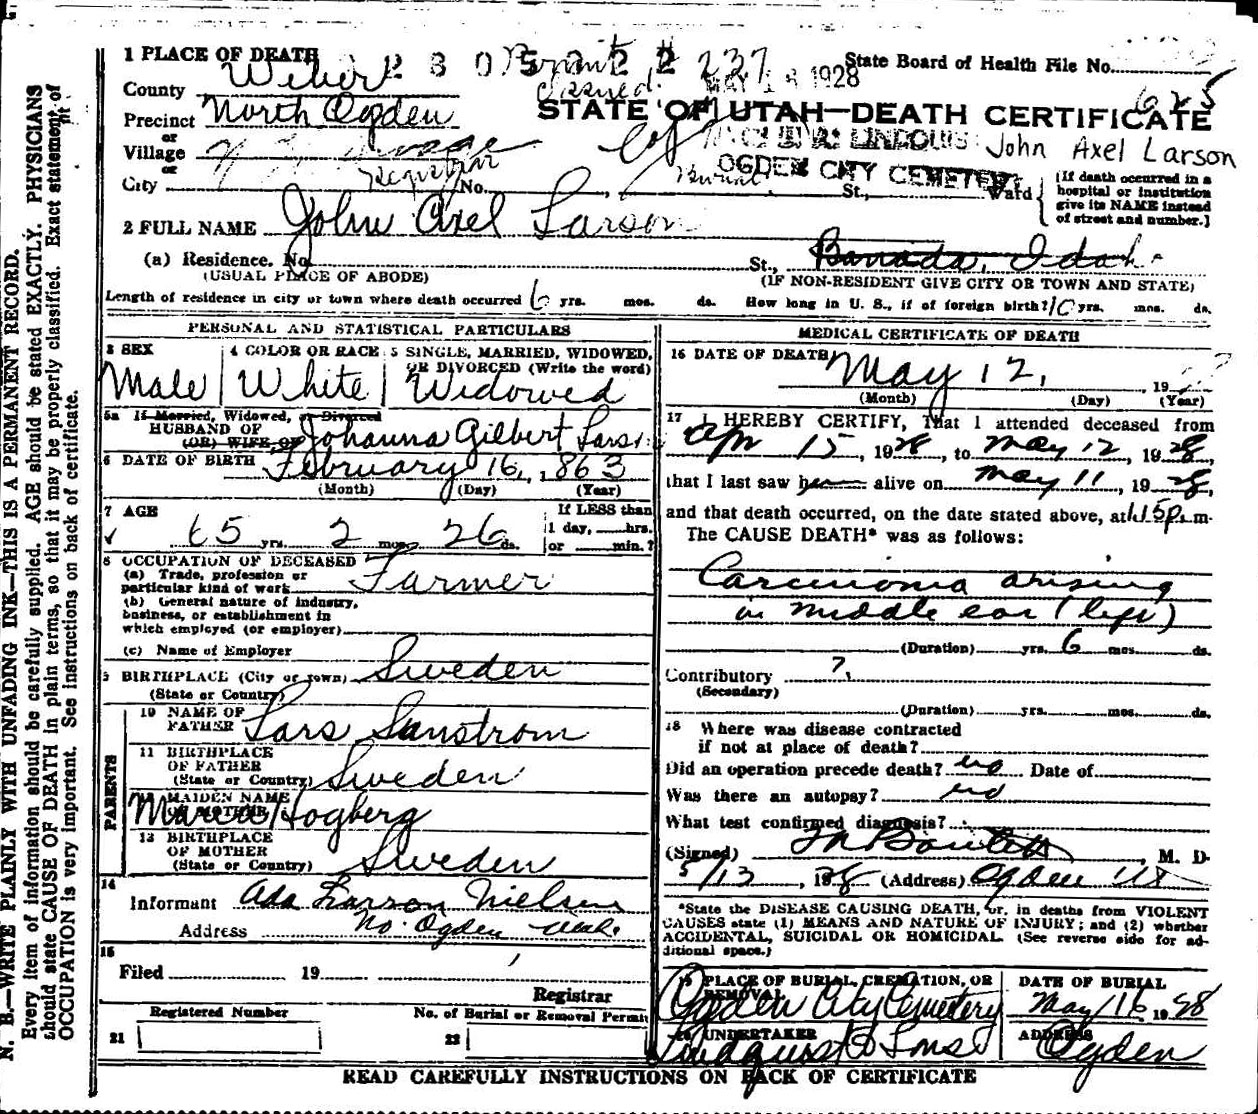 1 PLACE OF DEATH
Permit # 237
State Board of Health File No.
Issued MAY 18 1928
625
County Weber
STATE OF UTAH—DEATH CERTIFICATE
Precinct North Ogden
or
Village
John Axel Larson
or
OGDEN CITY CEMETERY
City No. St., Ward
(If death occurred in a hospital or institution give its NAME instead of street and number.)
2 FULL NAME John Axel Larson
(a) Residence. No. St., Idaho
(USUAL PLACE OF ABODE) (IF NON-RESIDENT GIVE CITY OR TOWN AND STATE)
Length of residence in city or town where death occurred 6 yrs. mos. ds. How long in U. S., if of foreign birth? yrs. mos. ds.
PERSONAL AND STATISTICAL PARTICULARS
3 SEX 4 COLOR OR RACE 5 SINGLE, MARRIED, WIDOWED, OR DIVORCED (Write the word)
Male White Widowed
5a If Married, Widowed, or Divorced
HUSBAND OF
(OR) WIFE OF Johanna Gilbert Larson
6 DATE OF BIRTH February 16, 1863
(Month) (Day) (Year)
7 AGE 65 yrs. 2 mos. 26 ds.
If LESS than
1 day, hrs.
or min.?
8 OCCUPATION OF DECEASED
(a) Trade, profession or
particular kind of work Farmer
(b) General nature of industry,
business, or establishment in
which employed (or employer)
(c) Name of Employer
9 BIRTHPLACE (City or town) Sweden
(State or Country)
PARENTS
10 NAME OF
FATHER Lars Sanstrom
11 BIRTHPLACE
OF FATHER
(State or Country) Sweden
12 MAIDEN NAME
OF MOTHER Maria Hogberg
13 BIRTHPLACE
OF MOTHER
(State or Country) Sweden
14
Informant Ada Larson Nielsen
Address No. Ogden Utah.
15
Filed 19
Registrar
Registered Number No. of Burial or Removal Permit
21 22
MEDICAL CERTIFICATE OF DEATH
16 DATE OF DEATH May 12, 19
(Month) (Day) (Year)
17 I HEREBY CERTIFY, That I attended deceased from
Apr 15, 1928, to May 12, 1928,
that I last saw alive on May 11, 1928,
and that death occurred, on the date stated above, at 1.15 p. m.
The CAUSE DEATH* was as follows:
Carcinoma arising
in middle ear (left)
(Duration) yrs. 6 mos. ds.
Contributory ?
(Secondary)
(Duration) yrs. mos. ds.
18 Where was disease contracted
if not at place of death?
Did an operation precede death? no Date of
Was there an autopsy? no
What test confirmed diagnosis?
(Signed) M. D.
5/13, 1928 (Address) Ogden Ut
*State the DISEASE CAUSING DEATH, or, in deaths from VIOLENT
CAUSES state (1) MEANS AND NATURE OF INJURY; and (2) whether
ACCIDENTAL, SUICIDAL OR HOMICIDAL. (See reverse side for ad-
ditional space.)
19 PLACE OF BURIAL, CREMATION, OR REMOVAL DATE OF BURIAL
Ogden City Cemetery May 16 1928
20 UNDERTAKER ADDRESS
Lindquist & Sons Ogden
READ CAREFULLY INSTRUCTIONS ON BACK OF CERTIFICATE
N. B.—WRITE PLAINLY WITH UNFADING INK—THIS IS A PERMANENT RECORD.
Every item of information should be carefully supplied. AGE should be stated EXACTLY. PHYSICIANS
should state CAUSE OF DEATH in plain terms, so that it may be properly classified. Exact statement of
OCCUPATION is very important. See instructions on back of certificate.